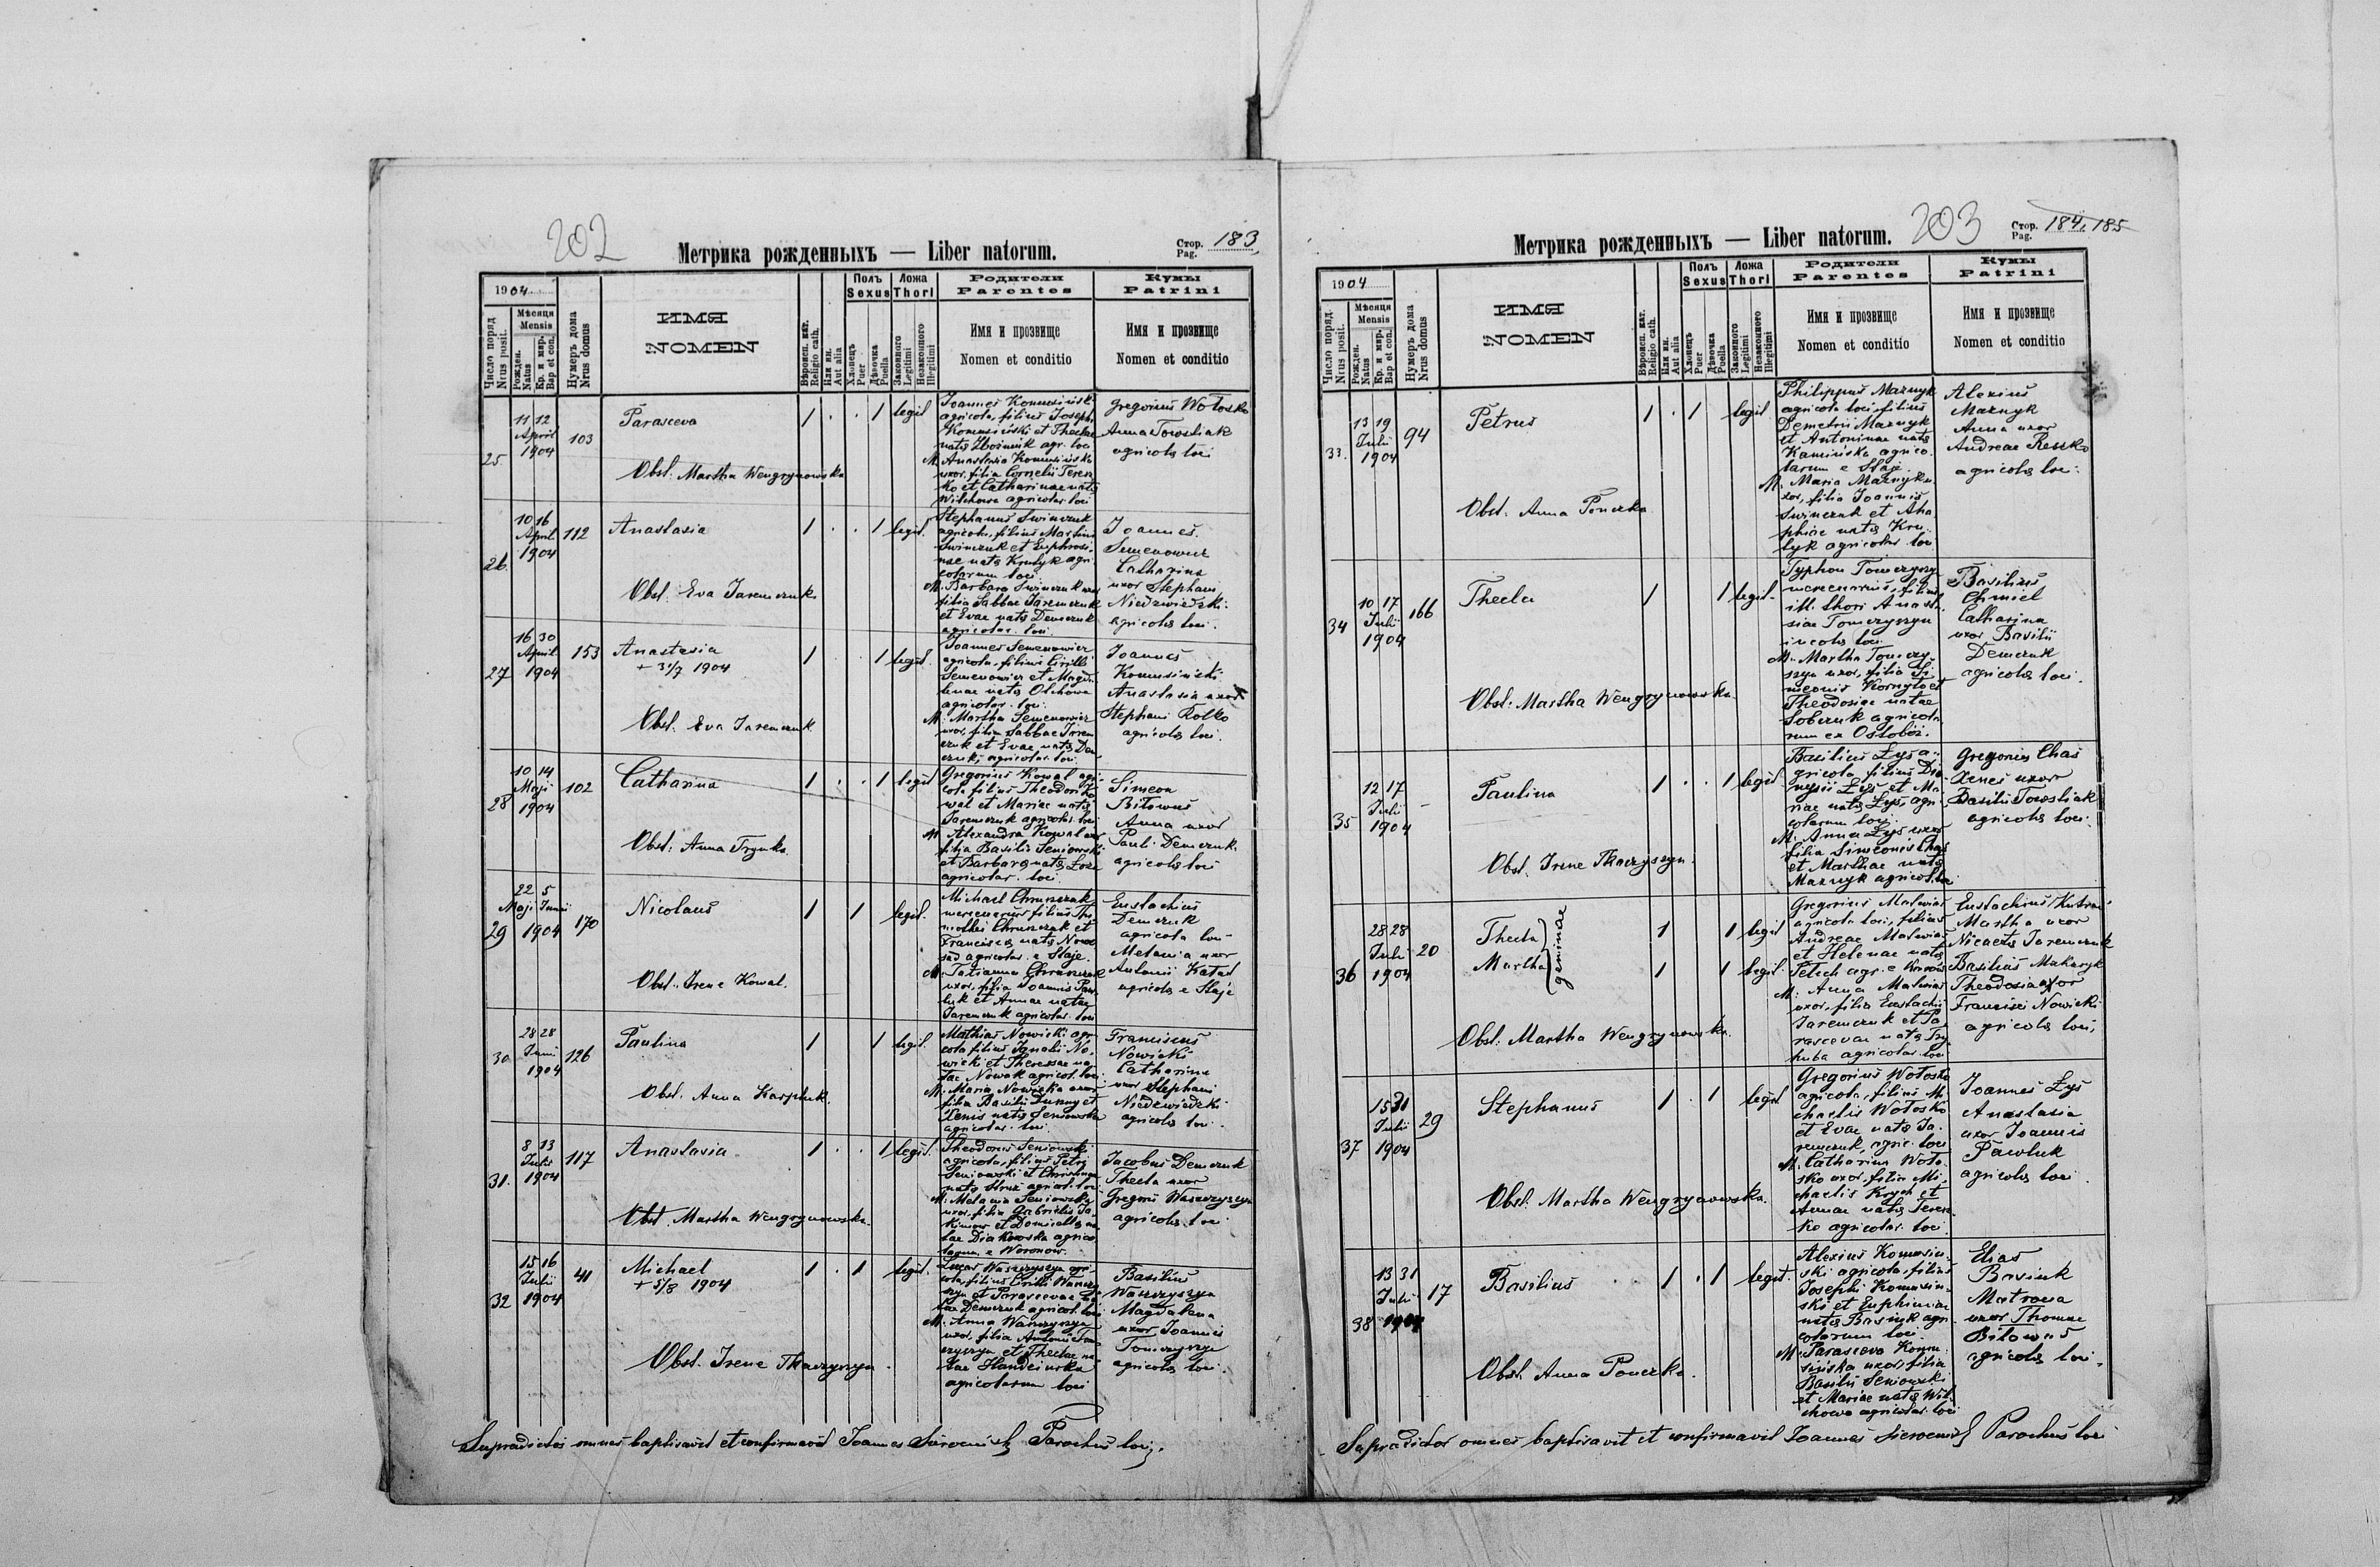 202
Метрика рожденныхъ — Liber natorum.
Стор. Pag. 183
1904
Число поряд. Nrus posit.
Мѣсяця Mensis
Рожден. Natus
Кр. и мир. Bap et con.
Нумеръ дома Nrus domus
ИМЯ
NOMEN
Вѣроисп. кат. Religio cath.
Или ин. Aut alia
Полъ Sexus
Хлопецъ Puer
Дѣвочка Puella
Ложа Thori
Законного Legitimi
Незаконного Illegitimi
Родители
Parentes
Имя и прозвище
Nomen et conditio
Кумы
Patrini
Имя и прозвище
Nomen et conditio
25.
11 12
April
1904
103
Parasceva
1 . . 1 legit
Obst. Martha Wengrynowska
Joannes Komusiński
agricola, filius Josephi
Komusiński et Theclae
natae agr. loci
M. Anastasia Komusińska
uxor, filia Cornelii Teren
ko et Catharinae natae
Witchowa agricolar. loci
Gregorius Wołosko
Anna Towstiak
agricolae loci
26.
10 16
April
1904
112
Anastasia
1 . . 1 legit.
Obst. Eva Jaremczuk
Stephanus Swinczuk
agricola, filius Martini
Swinczuk et Euphrosi
nae natae Krutyk agri
colarum loci
M. Barbara Swinczuk uxor
filia Sabbae Jaremczuk
et Evae natae Demczuk
agricolar. loci.
Joannes
Semenowicz
Catharina
uxor Stephani
Niedzwiedzki
agricolae loci.
27
16 30
April
1904
153
Anastasia
+ 31/7 1904
1 . 1 legit.
Obst. Eva Jaremczuk
Joannes Semenowicz
agricola, filius Cirilli
Semenowicz et Magda
lenae natae Olchowa
agricolar. loci.
M. Martha Semenowicz
uxor, filia Sabbae Jarem
czuk et Evae natae Dem
czuk, agricolar. loci.
Joannes
Komusiński
Anastasia uxor
Stephani Rolko
agricolae loci.
28
10 14
Maji
1904
102
Catharina
1 . . 1 legit
Obst. Anna Trynka
Gregorius Kowal agri
cola filius Theodori Ko
wal et Mariae natae
Jaremczuk agricolar. loci
M. Alexandra Kowal uxor
filia Basilii Seniowski
et Barbarae natae
agricolar. loci.
Simeon
Bitowus
Anna uxor
Pauli Demczuk
agricolae loci
29
22 5
Maji Junii
1904
170
Nicolaus
1 1 legit.
Obst. Irene Kowal.
Michael Chruszczak
mercenarius filius Thi
mothei Chruszczak et
Franciscae natae Nowo
sad agricolar. e Staje.
M. Tatianna Chruszczak
uxor, filia Joannis Paw
luk et Annae natae
Jaremczuk agricolar. loci
Eustachius
Demczuk
agricola loci
Melania uxor
Antonii
agricola e Staje
30
28 28
Juni
1904
126
Paulina
1 1 legit.
Obst. Anna Karpluk.
Mathias Nowicki agri
cola filius Ignatii No
wicki et Theressae na
tae Nowak agricol. loci
M. Maria Nowicka uxor
filia Basilii et
Xenis natae Seniowska
agricolar. loci.
Franciscus
Nowicki
Catharina
uxor Stephani
Niedzwiedzki
agricolae loci.
31.
8 13
Julii
1904
117
Anastasia
1 . . 1 legit.
Obst. Martha Wengrynowska
Theodorus Seniowski
agricola, filius Petri
Seniowski et Christinae
natae agricol. loci
M. Melania Seniowska
uxor, filia Gabrielis Ja
kimow et Domicellae na
tae Diakowska agrico
larum e Woronow.
Jacobus Demczuk
Thecla uxor
Gregorii Waszczyszyn
agricolae loci
32
15 16
Julii
1904
41
Michael
+ 5/8 1904
1 . 1 legit.
Obst. Irene Tkaczyszyn
Lucas Waszczyszyn agri
cola, filius Cirilli Waszczy
szyn et Parascevae na
tae Demczuk agricol. loci
M. Anna Waszczyszyn
uxor, filia Antonii Tom
czyszyn et Theclae na
tae
agricolarum loci
Basilius
Waszczyszyn
Magdalena
uxor Joannis
Tomczyszyn
agricolae loci.
Supradictos omnes baptisavit et confirmavit Joannes Parochus loci.
203
Метрика рожденныхъ — Liber natorum.
Стор. Pag. 184, 185
1904
Число поряд. Nrus posit.
Мѣсяця Mensis
Рожден. Natus
Кр. и мир. Bap et con.
Нумеръ дома Nrus domus
ИМЯ
NOMEN
Вѣроисп. кат. Religio cath.
Или ин. Aut alia
Полъ Sexus
Хлопецъ Puer
Дѣвочка Puella
Ложа Thori
Законного Legitimi
Незаконного Illegitimi
Родители
Parentes
Имя и прозвище
Nomen et conditio
Кумы
Patrini
Имя и прозвище
Nomen et conditio
33.
13 19
Julii
1904
94
Petrus
1 . 1 legit
Obst. Anna Ponczka
Philippus Maznyk
agricola loci, filius
Demetrii Maznyk
et Antoninae natae
Kamińska agrico
larum e Staje.
M. Maria Maznyk u
xor, filia Joannis
Swinczuk et Aha
phiae natae Kru
tyk agricolar. loci
Alexius
Maznyk
Anna uxor
Andreae Reszko
agricolae loci.
34
10 17
Julii
1904
166
Thecla
1 1 legit.
Obst. Martha Wengrynowska
Typhon Tomczyszyn
mercenarius, filius
ill. thori Anasta
siae Tomczyszyn
incolae loci.
M. Martha Tomczy
szyn uxor, filia Si
meonis Kornyło et
Theodosiae natae
Sobczuk agricola
rum ex Ostobóż.
Basilius
Chmiel
Catharina
uxor Basilii
Demczuk
agricolae loci.
35
12 17
Julii
1904
-
Paulina
1 . . 1 legit
Obst. Irene Tkaczyszyn
Basilius Łyś a
gricola, filius Dio
nysii Łyś et Ma
riae natae Łyś, agri
colarum loci.
M. Anna Łyś uxor
filia Simeonis Chaś
et Marthae natae
Maznyk agricol. loci
Gregorius Chaś
Xenes uxor
Basilii Towstiak
agricolae loci
36
28 28
Julii
1904
20
Thecla
Martha
geminae
1 1 legit
1 1 legit.
Obst. Martha Wengrynowska.
Gregorius Matwias
agricola loci, filius
Andreae Matwias
et Helenae natae
Petech agr. e
M. Anna Matwias
uxor, filia Eustachii
Jaremczuk et Pa
rascevae natae Try
huba agricolar. loci
Eustachius
Martha uxor
Nicaetae Jaremczuk
Basilius Makaryk
Theodosia uxor
Francisci Nowicki
agricolae loci,
37
15 31
Julii
1904
29
Stephanus
1 . 1 legit
Obst. Martha Wengrynowska.
Gregorius Wołosko
agricola, filius Mi
chaelis Wołosko
et Evae natae Ja
remczuk, agric. loci
M. Catharina Woło
sko uxor, filia Mi
chaelis et
Annae natae Teren
ko agricolar. loci.
Joannes Łyś
Anastasia
uxor Joannis
Pawluk
agricolae loci.
38
13 31
Julii
1904
17
Basilius
1 . 1 legit.
Obst. Anna Ponczka.
Alexius Komusiń
ski agricola, filius
Josephi Komusiń
ski et Euphimiae
natae Basiuk agri
colarum loci.
M. Parasceva Komu
sińska uxor, filia
Basilii Seniowski
et Mariae natae Wit
chowa agricolar. loci
Elias
Basiuk
Matrona
uxor Thomae
Bitowus
agricolae loci.
Supradictos omnes baptisavit et confirmavit Joannes Parochus loci